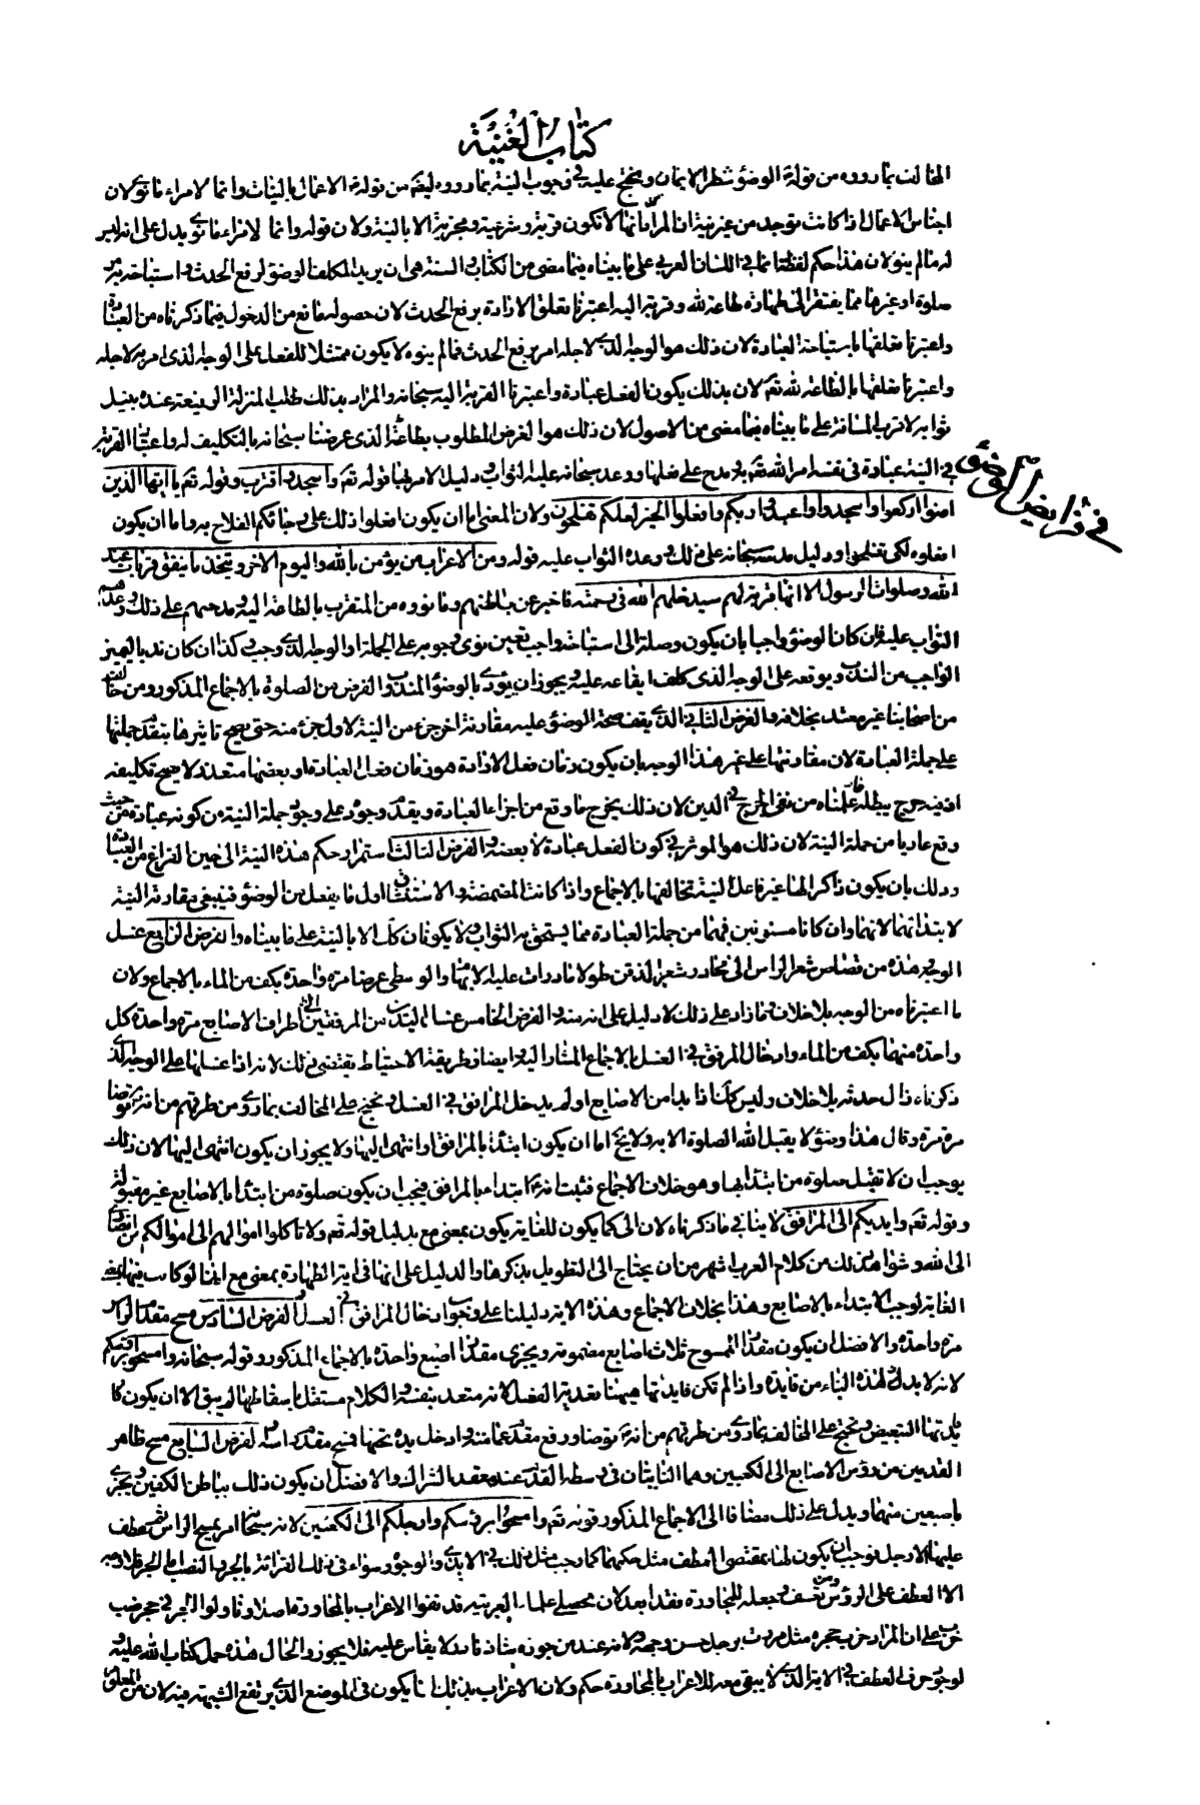 كتاب الغنية
المخالف بما رووه من قوله الوضؤ شطر الايمان ويحتج عليه في وجوب النية بما رووه ايضا من قوله الاعمال بالنيات وانما لامراء ما نوى لان
اجناس الاعمال اذا كانت توجد من غير نية ان المراد انها لا تكون قربة وشرعية ومجزية الا بالنية ولان قوله وانما لامراء ما نوى يدل على انه ليس
له ما لم ينو لان هذا حكم لفظة انما في اللسان العربي على ما بيناه فيما مضى من الكتاب والسنة هي ان يريد المكلف الوضؤ لرفع الحدث واستباحة ما يريد به
صلوة او غيرها مما يفتقر الى طهارة طاعة لله وقربة اليه اعتبرنا تعلق الارادة برفع الحدث لان حصوله مانع من الدخول فيما ذكرناه من العبادة
واعتبرنا تعلقها باستباحة العبادة لان ذلك هو الوجه الذي لاجله امر برفع الحدث فما لم ينوه لا يكون ممتثلا للفعل على الوجه الذى امر به لاجله
واعتبرنا تعلقها بالطاعة لله تعـ لان بذلك يكون الفعل عبادة واعتبرنا القربة اليه سبحانه والمراد بذلك طلب المنزلة الرفيعة عنده بنيل
ثوابه لا قرب المسافة على ما بيناه فيما مضى من الاصول لان ذلك هو الغرض المطلوب بطاعته الذى عرضنا سبحانه بالتكليف له واعتبار القربة
في النية عبادة في نفسه امر الله تعـ به ومدح على فعلها ووعد سبحانه عليه الثواب ودليل الامر بها قوله تعـ واسجد واقترب وقوله تعـ يا ايها الذين
في فرايض الوضؤ
امنوا اركعوا واسجدوا واعبدوا ربكم وافعلوا الخير لعلكم تفلحون ولان المعنى اما ان يكون افعلوا ذلك على رجائكم الفلاح به واما ان يكون
افعلوه لكى تفلحوا ودليل مدحه سبحانه على ذلك ووعده الثواب عليه قوله ومن الاعراب من يؤمن بالله واليوم الاخر ويتخذ ما ينفق قربات عند
الله وصلوات الرسول الا انها قربة لهم سيدخلهم الله في رحمته فاخبر عن باطنهم وما نووه من التقرب بالطاعة اليه ومدحهم على ذلك ووعدهم
الثواب عليه فان كان الوضؤ واجبا بان يكون وصلة الى استباحة واجب تعين نوى وجوبه على الجملة او الوجه الذي وجب وكذا ان كان ندبا ليميز
الواجب من الندب ويوقعه على الوجه الذى كلف ايقاعه عليه ويجوز ان يؤدى بالوضؤ المندوب الفرض من الصلوة بالاجماع المذكور ومن خالف
من اصحابنا غير معتد بخلافه والفرض الثاني الذي يقف صحة الوضؤ عليه مقارنة اخر جزء من النية لاول جزء منه حتى يصح تاثيرها بتقدم جملتها
على جملة العبادة لان مقارنتها على غير هذا الوجه بان يكون زمان فعل الارادة هو زمان فعل العبادة او بعضها متعذر لا يصح تكليفه
او فيه حرج يبطله ما علمناه من نفى الحرج في الدين لان ذلك يخرج ما وقع من اجزاء العبادة ويقدم وجوده على وجود جملة النية من كونه عبادة من حيث
وقع عاريا من جملة النية لان ذلك هو الموثر في كون الفعل عبادة لا بعضه والفرض الثالث استمرار حكم هذه النية الى حين الفراغ من العبادة
وذلك بان يكون ذاكرا لها غير فاعل لنية تخالفها بالاجماع واذا كانت المضمضة والاستنشاق اول ما يفعل من الوضؤ فينبغى مقارنة النية
لابتدائهما لانهما وان كانا مسنونين فهما من جملة العبادة مما يستحق به الثواب ولا يكونان كك الا بالنية على ما بيناه والفرض الرابع غسل
الوجه وحده من قصاص شعر الراس الى محادر شعر الذقن طولا وما دارت عليه الابهام والوسطى عرضا مرة واحدة بكف من الماء بالاجماع ولان
ما اعتبرناه من الوجه بلا خلاف وما زاد على ذلك لا دليل على انه منه والفرض الخامس غسل اليدين من المرفقين الى اطراف الاصابع مرة واحدة كل
واحدة منهما بكف من الماء وادخال المرفق في الغسل بالاجماع المشار اليه وايضا فطريقة الاحتياط يقتضى ذلك لانه اذا غسلها على الوجه الذي
ذكرناه زال حدثه بلا خلاف وليس كك اذا بدا من الاصابع او لم يدخل المرافق في الغسل ويحتج على المخالف بما روى من طرقهم من انه ع توضا
مرة مرة وقال هذا وضؤ لا يقبل الله الصلوة الا به ولا يخ اما ان يكون ابتدأ بالمرافق او انتهى اليها ولا يجوز ان يكون انتهى اليها لان ذلك
يوجب ان لا تقبل صلوة من ابتدأ بها وهو خلاف الاجماع فثبت انه ع ابتداء بالمرافق فيجب ان يكون صلوة من ابتدأ بالاصابع غير مقبولة
وقوله تعـ وايديكم الى المرافق لا ينافي ما ذكرناه لان الى كما يكون للغاية يكون بمعنى مع بدليل قوله تعـ ولا تاكلوا اموالهم الى اموالكم من انصارى
الى الله وشواهد ذلك من كلام العرب اشهر من ان يحتاج الى التطويل بذكرها والدليل على انها في اية الطهارة بمعنى مع انها لو كانت فيها بمعنى
الغاية لوجب الابتداء بالاصابع وهذا بخلاف الاجماع وهذه الاية دليلنا على وجوب ادخال المرافق في الغسل والفرض السادس مسح مقدم الراس
مرة واحدة والافضل ان يكون مقدار الممسوح ثلاث اصابع مضمومة ويجزى مقدار اصبع واحدة بالاجماع المذكور وقوله سبحانه وامسحوا برؤسكم
لانه لا بد لهذه الباء من فايدة واذا لم تكن فايدتها هيهنا تعدية الفعل لانه متعد بنفسه والكلام مستقل باسقاطها لم يبق الا ان يكون
فايدتها التبعيض ويحتج على المخالف بما روى من طرقهم من انه ع توضا ورفع مقدم عمامته وادخل يده تحتها فمسح مقدم راسه والفرض السابع مسح ظاهر
القدمين من رؤس الاصابع الى الكعبين وهما النابتان في وسط القدم عند معقد الشراك والافضل ان يكون ذلك بباطن الكفين ويجزى
باصبعين منهما ويدل على ذلك مضافا الى الاجماع المذكور قوله تعـ وامسحوا برؤسكم وارجلكم الى الكعبين لانه سبحانه امر بمسح الراس ثم عطف
عليها الارجل فوجب ان يكون لها بمقتضى العطف مثل حكمها كما وجب مثل ذلك في الايدى والوجوه وسواء في ذلك القرائة بالجر والنصب اما الجر فلا وجه
الا العطف على الرؤس ومن تعسف وجعله للمجاورة فقد ابعد لان محصلى علماء العربية قد نفوا الاعراب بالمجاورة اصلا وتاولوا الجر في جحر ضب
خرب على ان المراد خرب جحره مثل مررت برجل حسن وجهه ولانه عند من جوزه شاذ نادر لا يقاس عليه فلا يجوز والحال هذه حمل كتاب الله عليه
لوجود حرف العطف في الاية الذي لا يبقى معه للاعراب بالمجاورة حكم ولان الاعراب بذلك انما يكون في الموضع الذي يرتفع الشبهة فيه لان من المعلوم